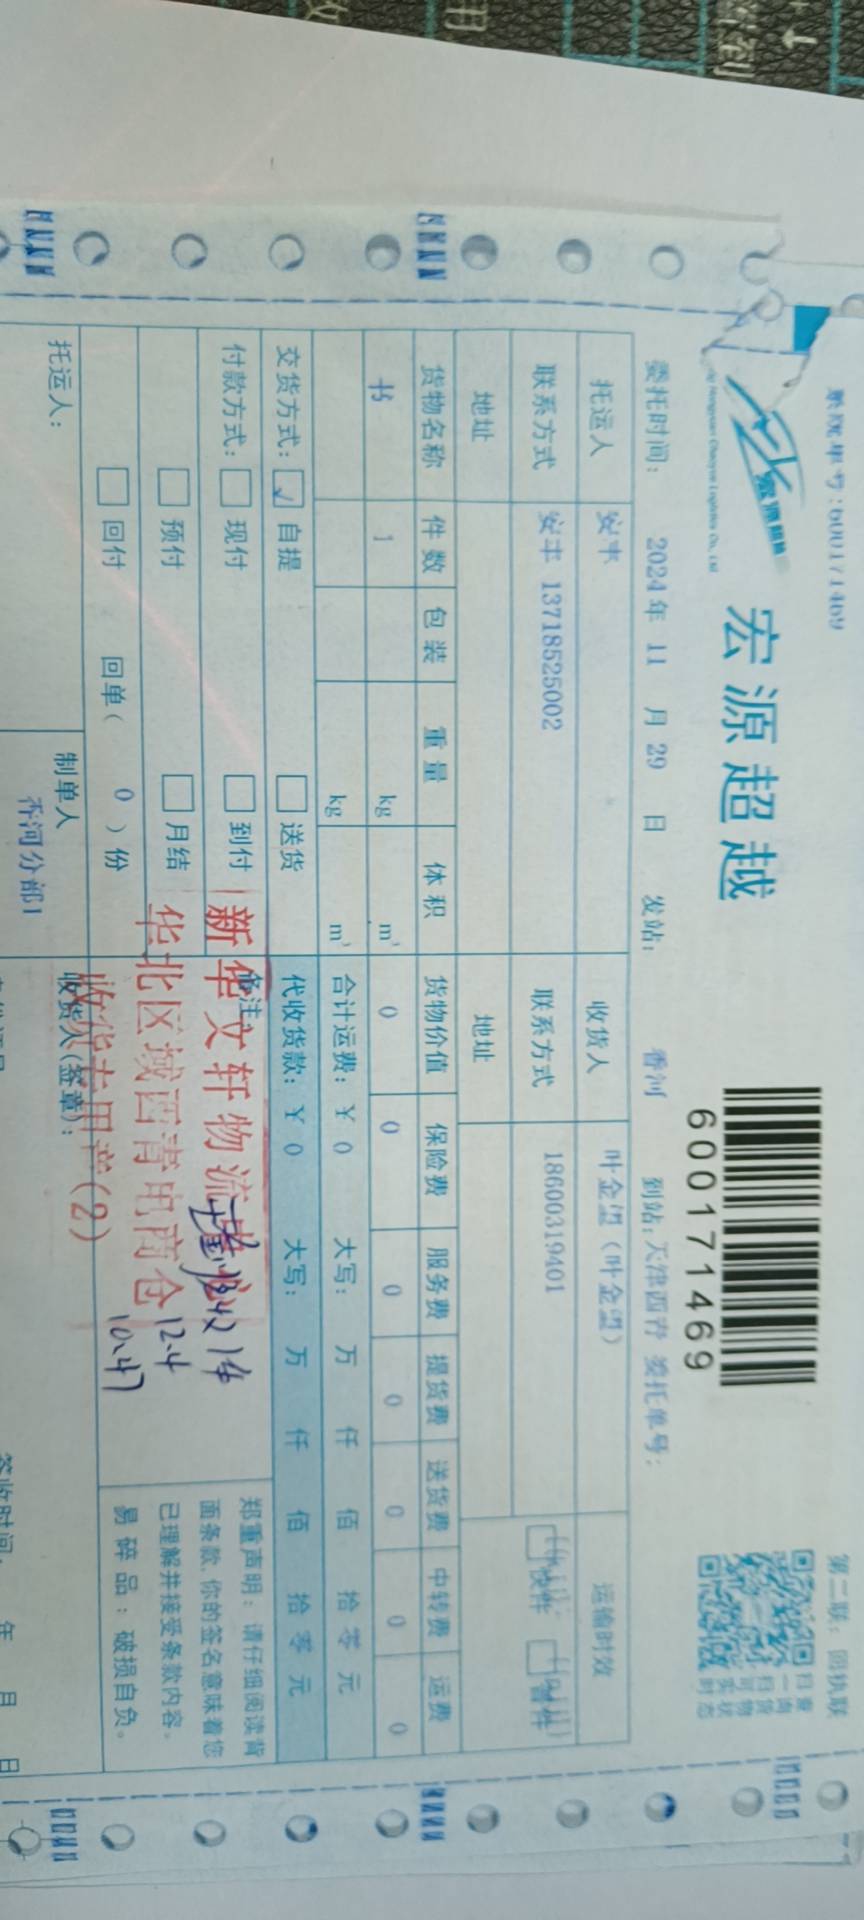 系统单号:600171469
第二联：回执联
宏源超越
600171469
扫一扫
查询货物
实时状态
委托时间： 2024年 11 月 29 日 发站： 香河 到站：天津西青 委托单号：
托运人 安丰 收货人 叶金盟（叶金盟） 运输时效
联系方式 安丰 13718525002 联系方式 18600319401 快件 普件
地址 地址
货物名称 件数 包装 重量 体积 货物价值 保险费 服务费 提货费 送货费 中转费 运费
书 1 kg m³ 0 0 0 0 0 0 0
kg m³ 合计运费：￥ 0 大写： 万 仟 佰 拾 零 元
交货方式： ✓ 自提 送货 代收货款：￥ 0 大写： 万 仟 佰 拾 零 元
付款方式： 现付 到付 备注
预付 月结
回付 回单（ 0 ）份
新华文轩物流
华北区域西青电商仓
收货专用章(2)
1件
12.4
10.47
郑重声明：请仔细阅读背
面条款，你的签名意味着您
已理解并接受条款内容。
易碎品：破损自负。
托运人： 制单人 收货人(签章)：
香河分部1
签收时间： 年 月 日